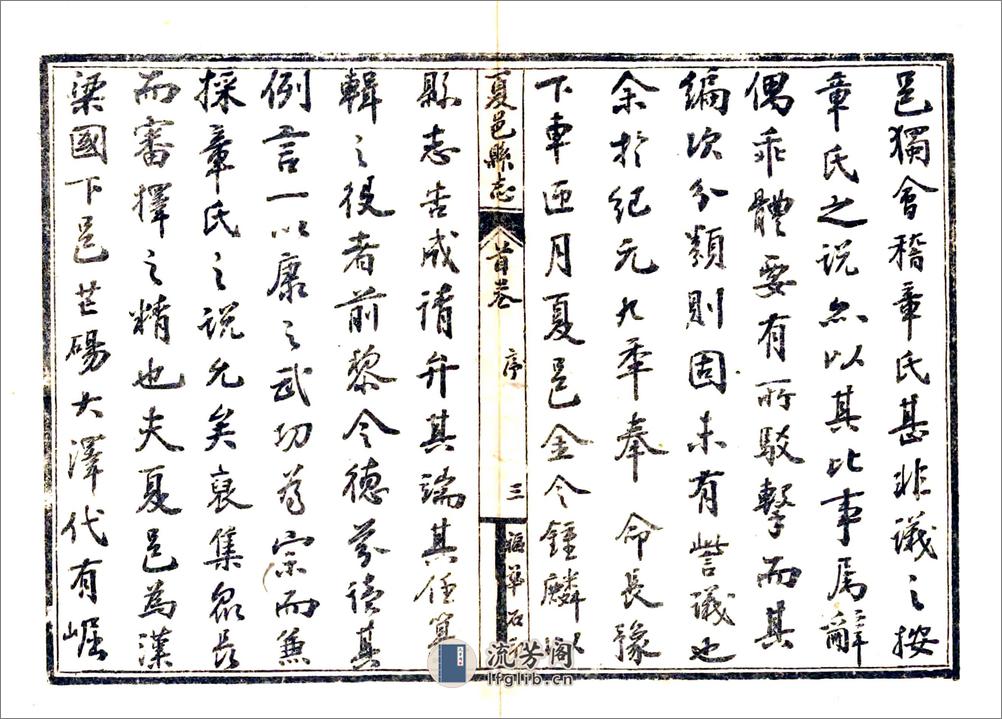 邑獨會稽章氏甚非議之按
章氏之说亦以其比事属辭
偶乖體要有所駁擊而其
編次分類則固未有訾議也
余於紀元九年奉 命長豫
下車匝月夏邑金令鍾麟以
夏邑縣志 首卷 序 三
縣志告成請弁其端其任纂
輯之役者前黎令德芬读其
例言一以康之武功為宗而兼
採章氏之说允矣裒集衆长
而審擇之精也夫夏邑為漢
梁國下邑芒碭大澤代有崛
流芳阁
lfglib.cn